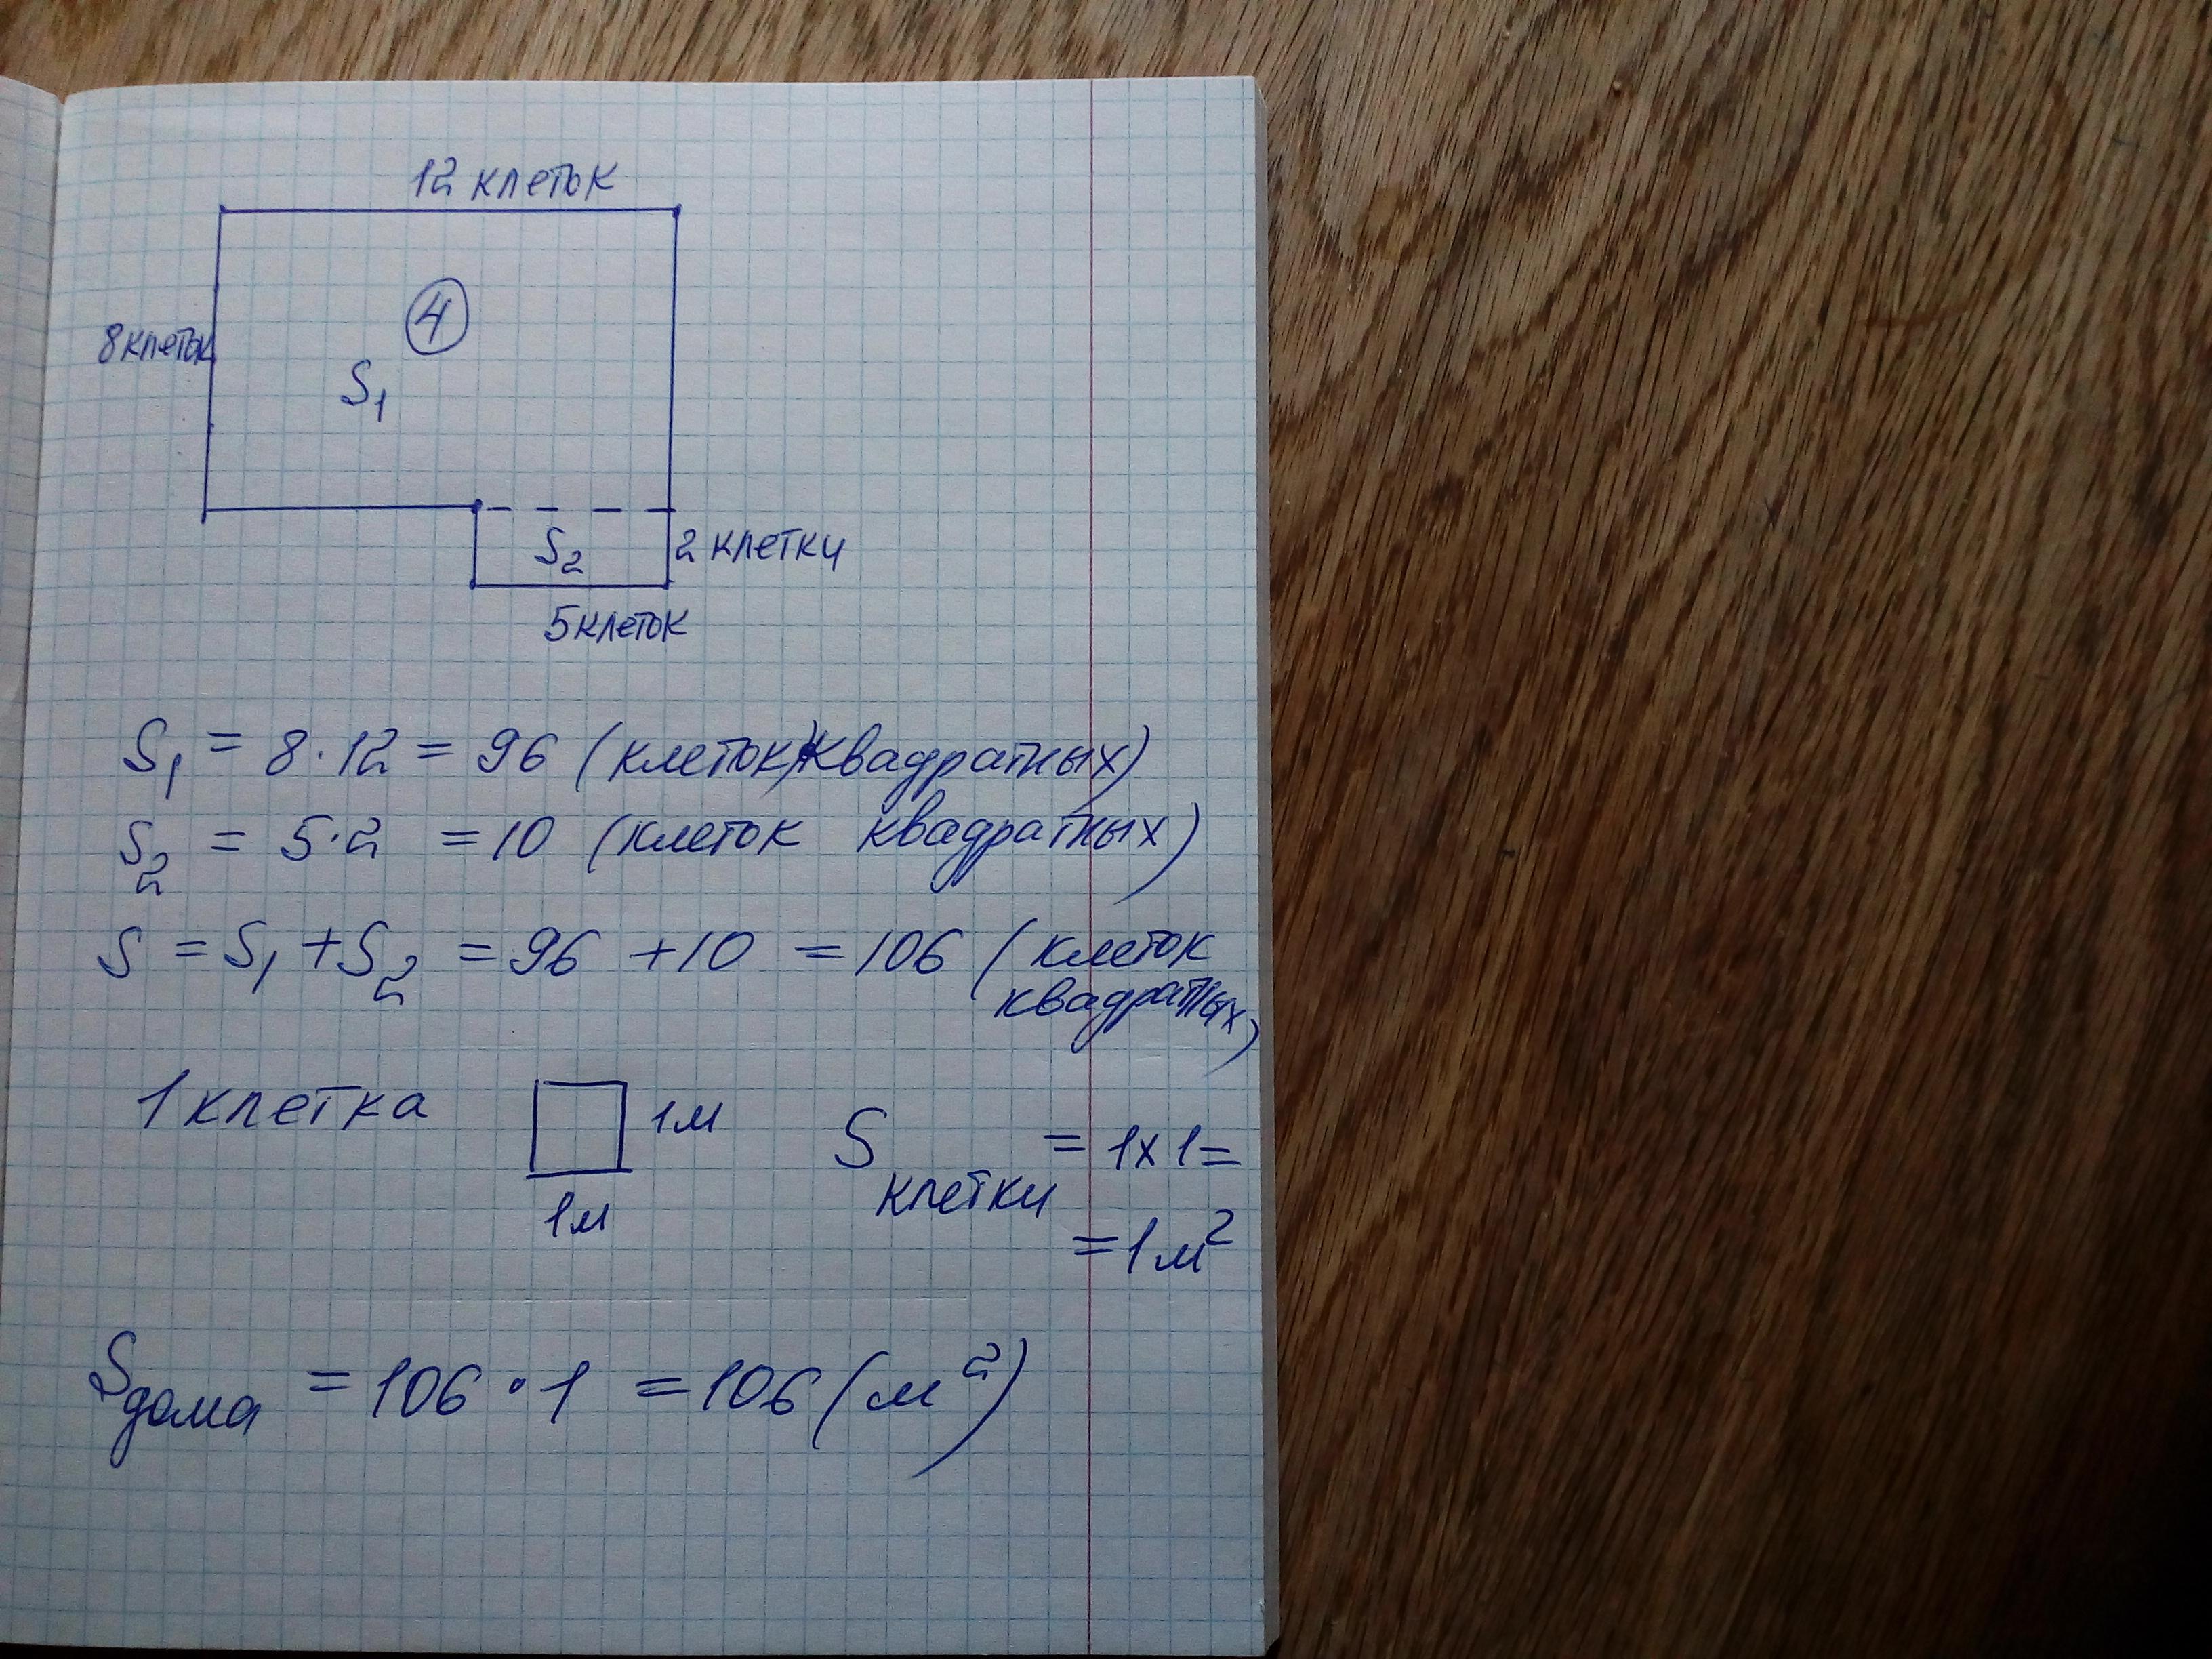 12 клеток
4
8 клеток
S₁
S₂
2 клетки
5 клеток
S₁ = 8 · 12 = 96 (клеток) квадратных)
S₂ = 5 · 2 = 10 (клеток квадратных)
S = S₁ + S₂ = 96 + 10 = 106 (клеток
квадратных)
1 клетка 1м S клетки = 1x1=
1м = 1 м²
S дома = 106 · 1 = 106 (м²)